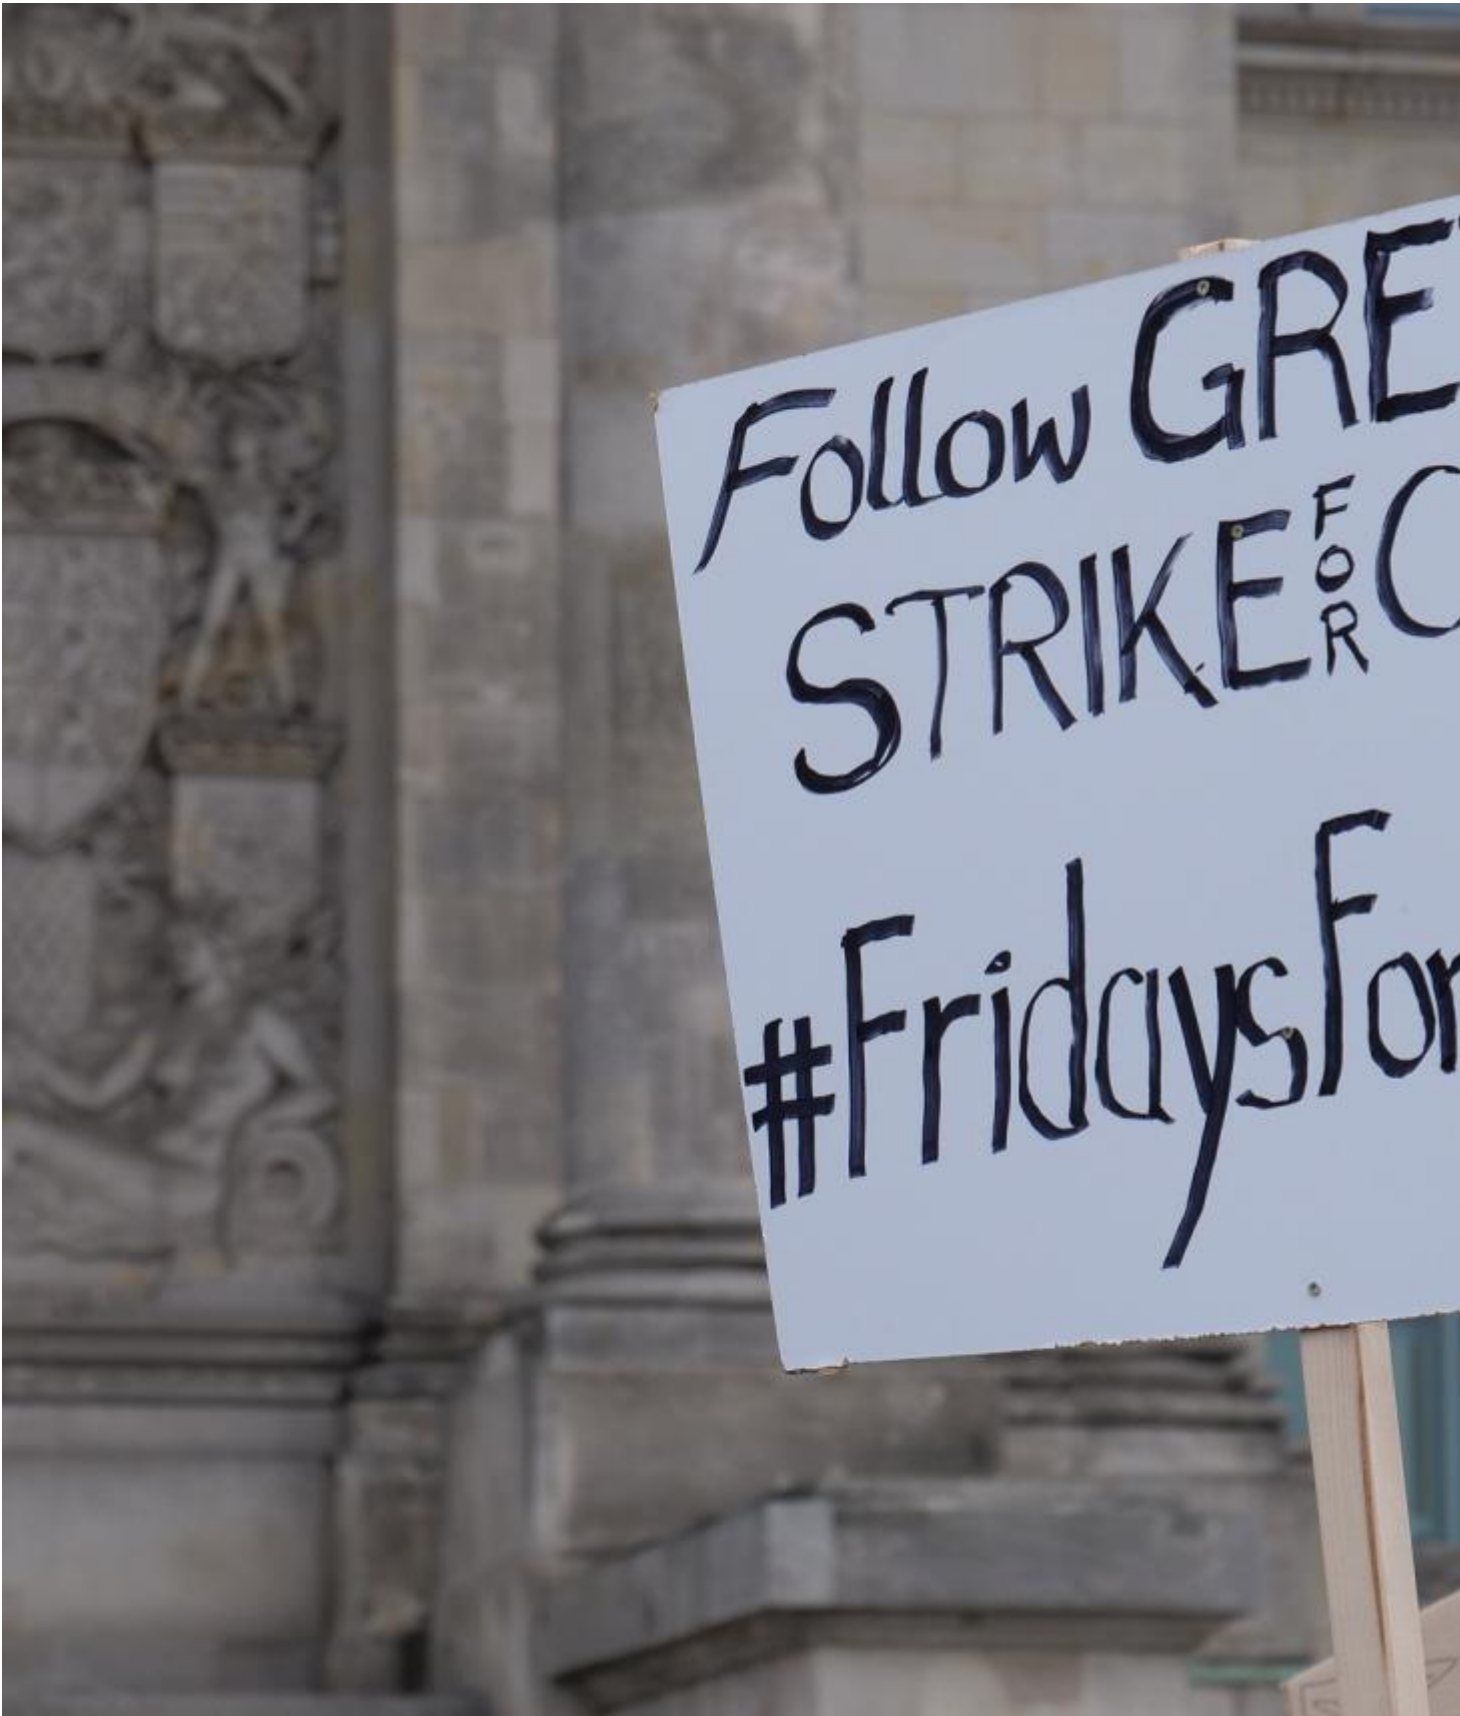 Follow GRE
STRIKE FOR C
#FridaysFor